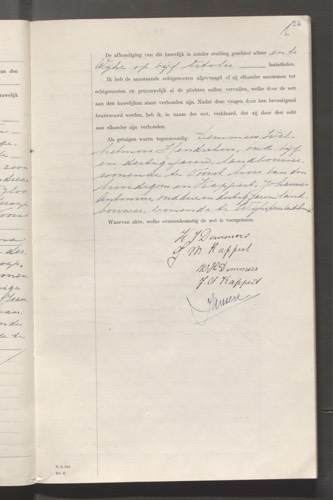 De afkondiging van dit huwelijk is zonder stuiting geschied alhier en te
Wijhe op vijf October laatstleden.
Ik heb de aanstaande echtgenooten afgevraagd of zij elkander aannemen tot
echtgenooten en getrouwelijk al de plichten zullen vervullen, welke door de wet
aan den huwelijken staat verbonden zijn. Nadat deze vragen door hen bevestigend
beantwoord werden, heb ik, in naam der wet, verklaard, dat zij door den echt
aan elkander zijn verbonden.
Als getuigen waren tegenwoordig: Demmers Wil-
helmus Hendrikus, oud vijf
en dertig jaren, landbouwer,
wonende te Voorst, broer van den
bruidegom en Kappert, Johannes
Antonius oud een en dertig jaren land-
bouwer, wonende te
Waarvan akte, welke overeenkomstig de wet is voorgelezen.
H J Demmers
G M Kappert
W H Demmers
J A Kappert
Jansen